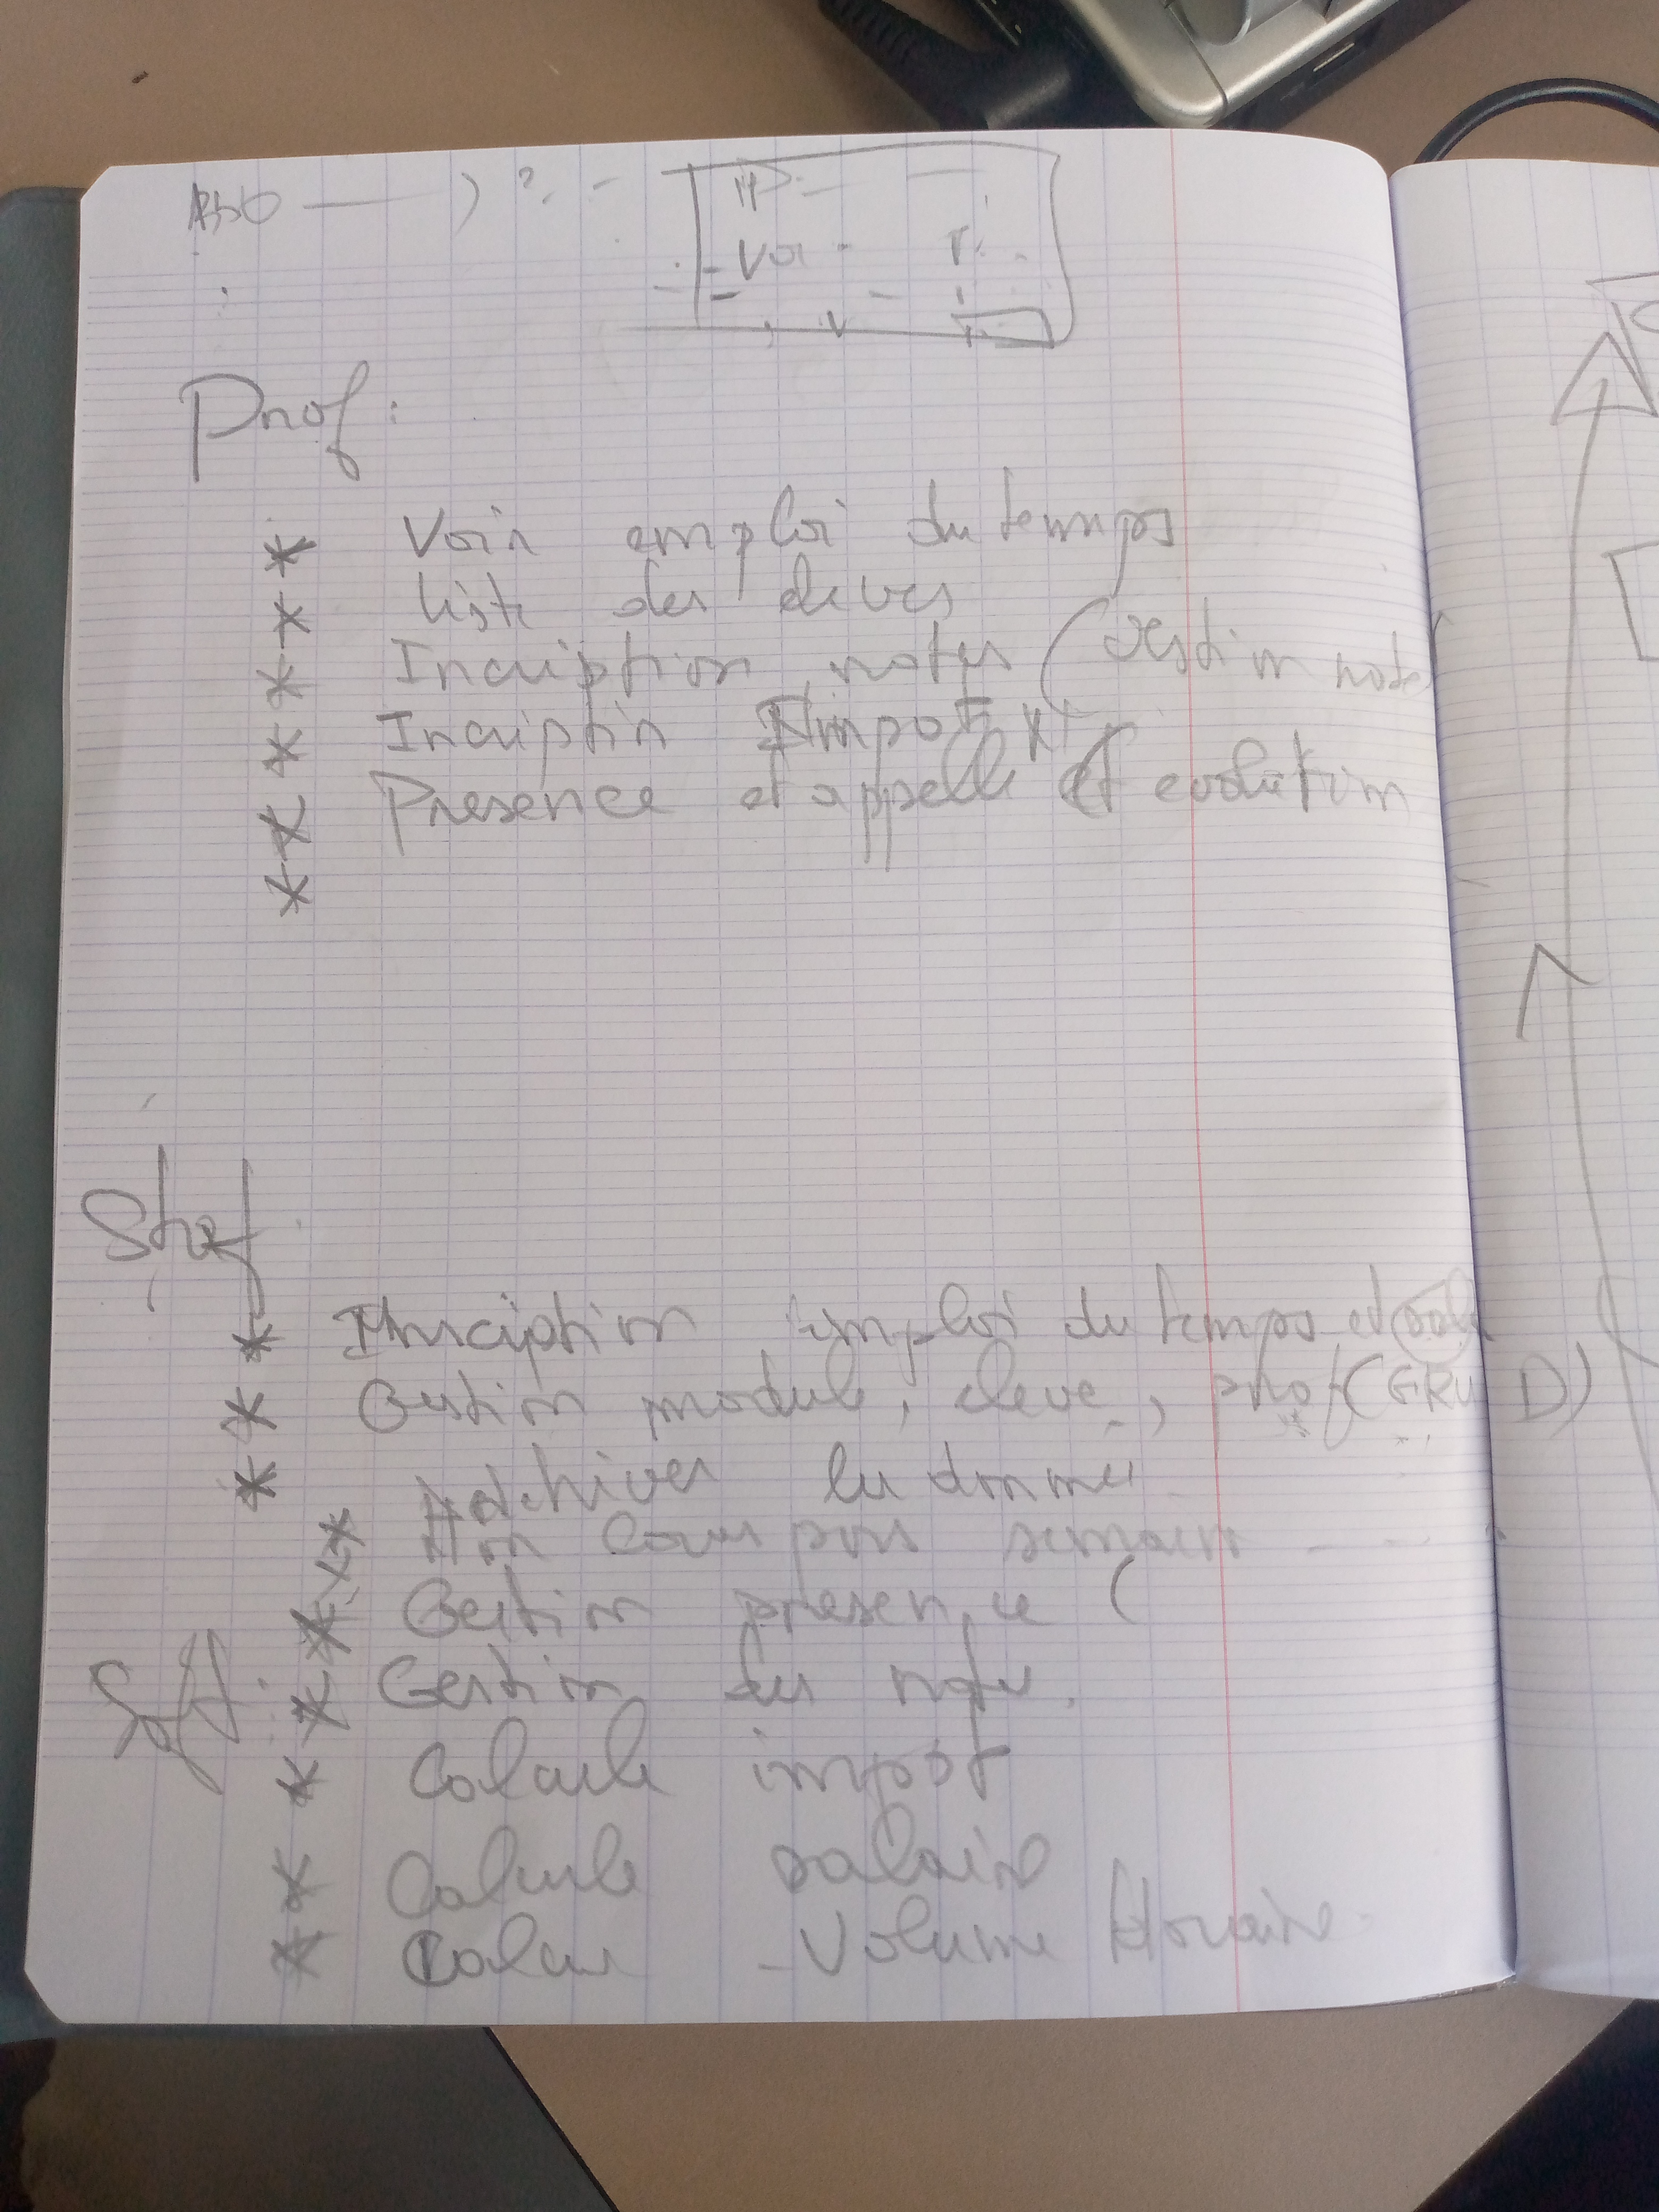 Prof :
* Voir emploi du temps
* liste des eleves
* Inscription notes (Gestion notes)
* Inscription
* Presence et appelle et evolution
*
Staf
* Inscription emploi du temps et
* Gestion module, eleve, prof (GRUD)
* Archiver les donnés
* cours pars semain
* Gestion presence (
Soft : * Gestion des notes.
* Calcule impôt
* Calcule salaire
* Calcul Volume Horaire